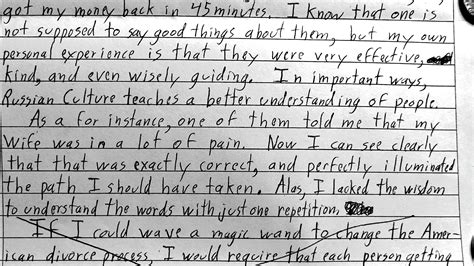 got my money back in 45 minutes. I know that one is
not supposed to say good things about them, but my own
personal experience is that they were very effective,
kind, and even wisely guiding. In important ways,
Russian Culture teaches a better understanding of people.
As a for instance, one of them told me that my
wife was in a lot of pain. Now I can see clearly
that that was exactly correct, and perfectly illuminated
the path I should have taken. Alas, I lacked the wisdom
to understand the words with just one repetition.
If I could wave a magic wand to change the Amer-
ican divorce process, I would require that each person getting